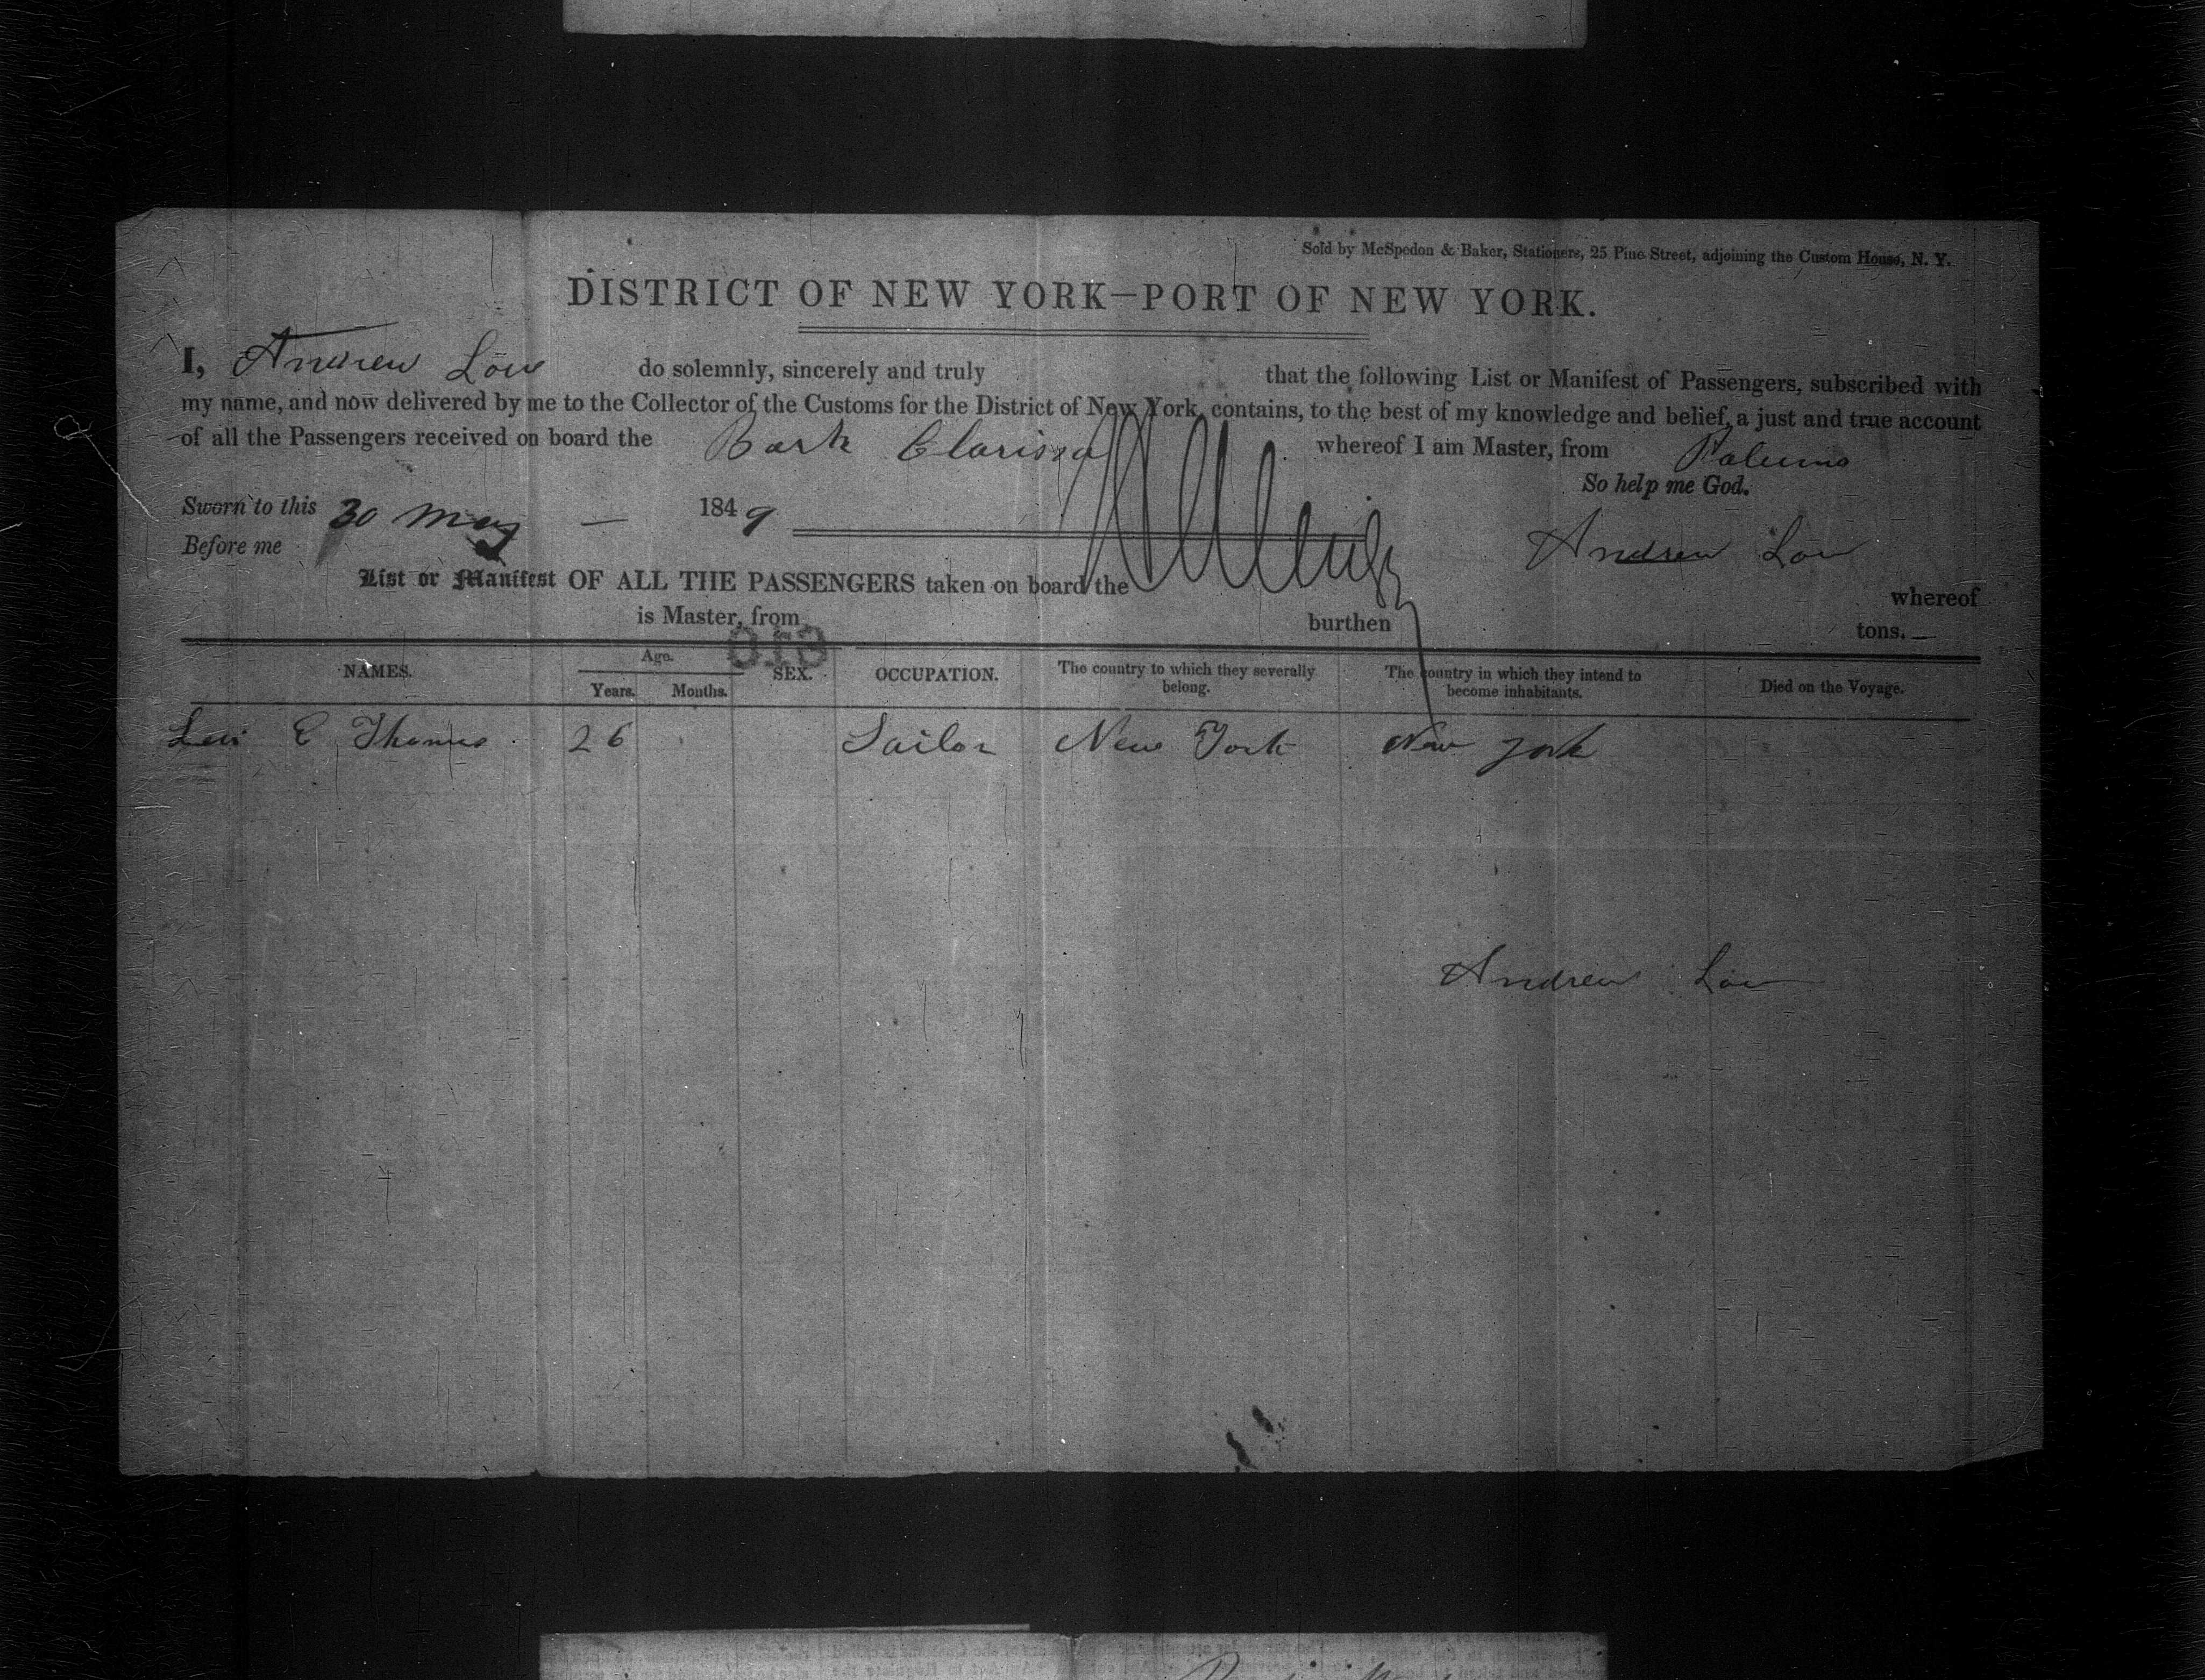 Sold by McSpedon & Baker, Stationers, 25 Pine Street, adjoining the Custom House, N. Y.
DISTRICT OF NEW YORK—PORT OF NEW YORK.
I, Andrew Low do solemnly, sincerely and truly that the following List or Manifest of Passengers, subscribed with
my name, and now delivered by me to the Collector of the Customs for the District of New York, contains, to the best of my knowledge and belief, a just and true account
of all the Passengers received on board the Bark Clarissa whereof I am Master, from Palermo
So help me God.
Sworn to this 30 May — 1849
Before me Andrew Low
List or Manifest OF ALL THE PASSENGERS taken on board the whereof
is Master, from burthen tons.
NAMES. Age. Years. Months. SEX. OCCUPATION. The country to which they severally belong. The country in which they intend to become inhabitants. Died on the Voyage.
Levi E Thomas 26 Sailor New York New York
Andrew Low